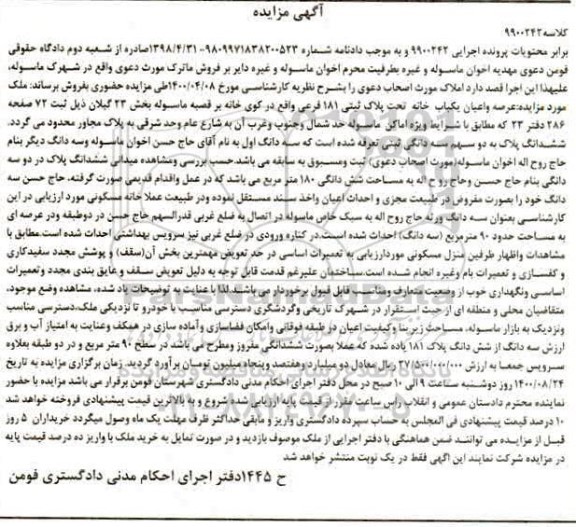 آگهی مزایده
کلاسه ۹۹۰۰۲۴۲
برابر محتویات پرونده اجرایی ۹۹۰۰۲۴۲ و به موجب دادنامه شماره ۹۸۰۹۹۷۱۸۳۸۲۰۰۵۲۳-۱۳۹۸/۴/۳۱صادره از شعبه دوم دادگاه حقوقی
فومن دعوی مهدیه اخوان ماسوله و غیره بطرفیت محرم اخوان ماسوله و غیره دایر بر فروش ماترک مورث دعوی واقع در شهرک ماسوله،
علیهذا این اجرا قصد دارد املاک مورث اصحاب دعوی را بشرح نظریه کارشناسی مورخ ۱۴۰۰/۰۴/۰۸طی مزایده حضوری بفروش برساند: ملک
مورد مزایده:عرصه واعیان یکباب خانه تحت پلاک ثبتی ۱۸۱ فرعی واقع در کوی خانه بر قصبه ماسوله بخش ۲۳ گیلان ذیل ثبت ۷۲ صفحه
۲۸۶ دفتر ۲۳ که مطابق با شرایط ویژه اماکن ماسوله حد شمال وجنوب وغرب آن به شارع عام وحد شرقی به پلاک مجاور محدود می گردد.
ششدانگ پلاک به دو سهم سه دانگی ثبتی تعرفه شده است که سه دانگ اول به نام آقای حاج حسن اخوان ماسوله وسه دانگ دیگر بنام
حاج روح اله اخوان ماسوله(مورث اصحاب دعوی) ثبت ومسبوق به سابقه می باشد.حسب بررسی ومشاهده میدانی ششدانگ پلاک در دو سه
دانگی بنام حاج حسن وحاج روح اله به مساحت شش دانگی ۱۸۰ متر مربع می باشد که در عمل واقدام قدیمی صورت گرفته، حاج حسن سه
دانگ خود را بصورت مفروض در طبیعت مجزی و احداث اعیان واخذ سند مستقل نموده ودر طبیعت عملا خانه مسکونی مورد ارزیابی در این
کارشناسی بعنوان سه دانگ ورثه حاج روح اله به سبک خاص ماسوله در اتصال به ضلع غربی قدرالسهم حاج حسن در دوطبقه ودر عرصه ای
به مساحت حدود ۹۰ مترمربع (سه دانگ) احداث شده است.در کناره ورودی در ضلع غربی نیز سرویس بهداشتی احداث شده است.مطابق با
مشاهدات واظهار طرفین منزل مسکونی موردارزیابی به تعمیرات اساسی در حد تعویض مهمترین بخش آن(سقف) و پوشش مجدد سفیدکاری
و کفسازی و تعمیرات بام وغیره انجام شده است.ساختمان علیرغم قدمت قابل توجه به دلیل تعویض سقف و عایق بندی مجدد وتعمیرات
اساسی ونگهداری خوب از وضعیت متعارف ومناسب و قابل قبول برخوردار می باشد.لذا با عنایت به توضیحات یاد شده، مشاهده وضع موجود،
متقاضیان محلی و منطقه ای از حیث استقرار در شهرک تاریخی وگردشگری دسترسی مناسب با خودرو تا نزدیکی ملک،دسترسی مناسب
ونزدیک به بازار ماسوله، مساحت زیربنا وکیفیت اعیان در طبقه فوقانی وامکان فضاسازی و آماده سازی در همکف وعنایت به امتیاز آب و برق
ارزش سه دانگ از شش دانگ پلاک ۱۸۱ یاده شده که عملا بصورت ششدانگی مفروز ومطرح می باشد در سطح ۹۰ متر مربع و در دو طبقه بعلاوه
سرویس جمعا به ارزش ۲۷/۵۰۰/۰۰۰/۰۰۰ ریال معادل دو میلیارد وهفتصد وپنجاه میلیون تومان برآورد گردید. زمان برگزاری مزایده به تاریخ
۱۴۰۰/۰۸/۲۴ روز دوشنبه ساعت ۹ الی ۱۰ صبح در محل دفتر اجرای احکام مدنی دادگستری شهرستان فومن برقرار می باشد مزایده با حضور
نماینده محترم دادستان عمومی و انقلاب راس ساعت مقرر از قیمت پایه ارزیابی شده شروع و به بالاترین قیمت پیشنهادی فروخته خواهد شد
۱۰ درصد قیمت پیشنهادی فی المجلس به حساب سپرده دادگستری واریز و مابقی حداکثر ظرف مهلت یک ماه وصول میگردد خریداران ۵ روز
قبل از مزایده می توانند ضمن هماهنگی با دفتر اجرایی از ملک موصوف بازدید و در صورت تمایل به خرید ملک با واریز ده درصد قیمت پایه
در مزایده شرکت نمایند این اگهی فقط در یک نوبت منتشر خواهد شد
ح ۱۴۴۵دفتر اجرای احکام مدنی دادگستری فومن